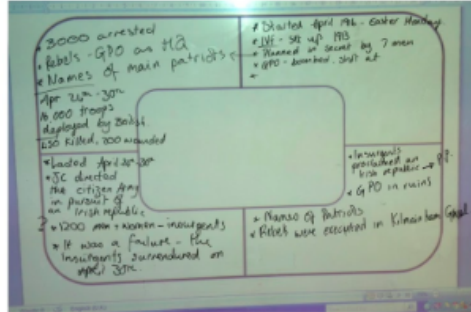 * 3000 arrested
* Rebels - GPO as HQ
* Names of main patriots
Apr 24th - 30th
16 000 troops
deployed by British.
450 killed, 200 wounded
* Lasted April 24th - 30th
* JC directed
the citizen Army
in pursuit of
an Irish republic
? * 1200 men + women - insurgents
* It was a failure - the
insurgents surrendered on
April 30th.
* Started April 1916 - Easter Monday
* IVF - set up 1913
* Planned in secret by 7 men
* GPO - bombed, shot at
*
* Insurgents
proclaimed an
Irish republic
* GPO in ruins
* Names of Patriots
* Rebels were executed in Kilmainham Gaol